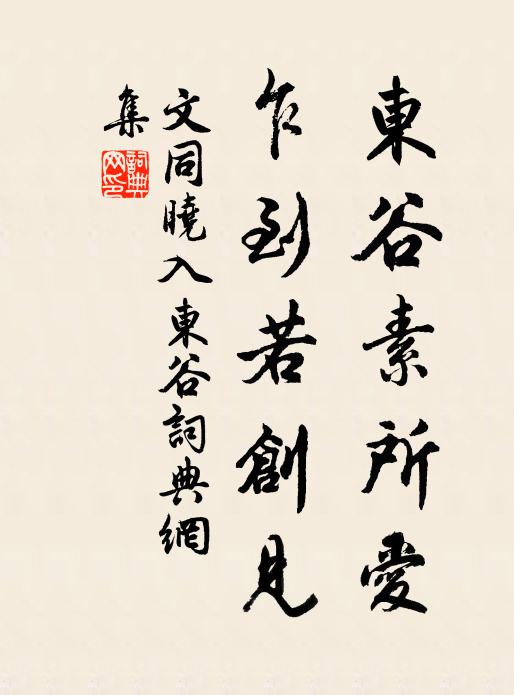 東谷素所愛
乍到若創見
文同曉入東谷詞典網
集
詞典
网印